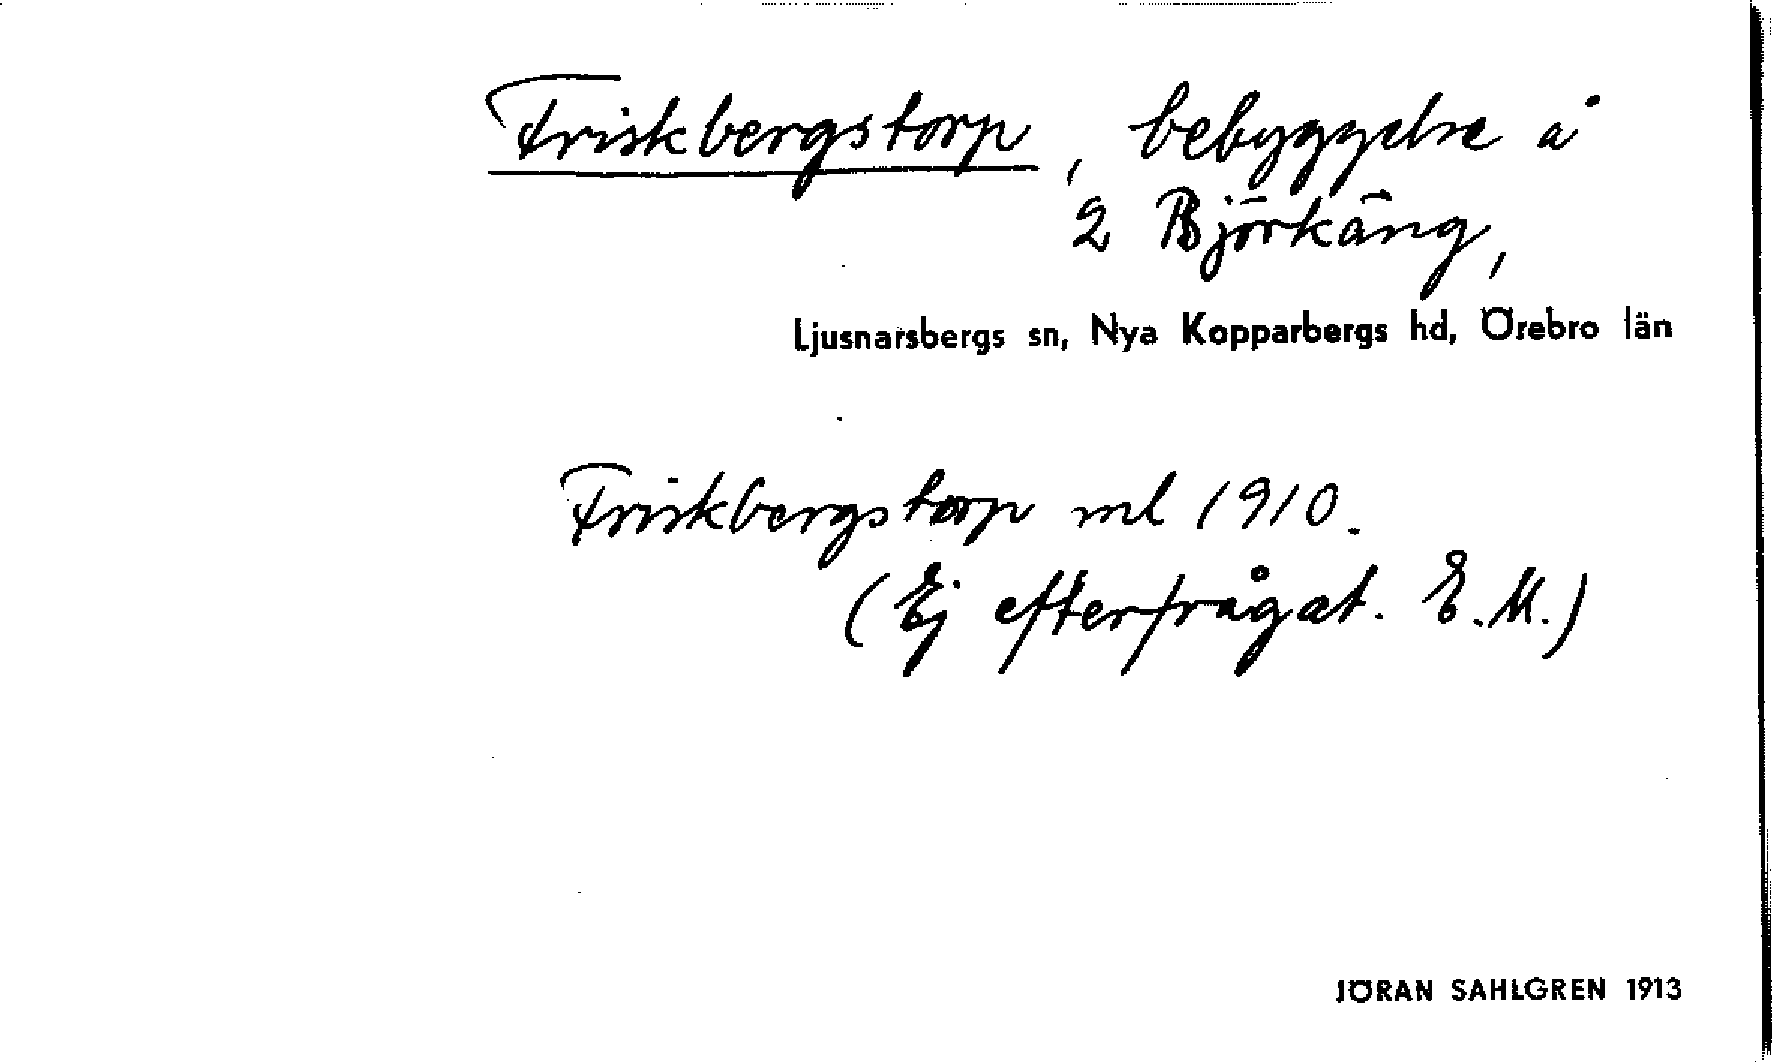 Friskbergstorp, bebyggelse å
2 Björkäng,
Ljusnarsbergs sn, Nya Kopparbergs hd, Örebro län
Friskbergstorp ml 1910.
(Ej efterfrågat. E.M.)
JÖRAN SAHLGREN 1913